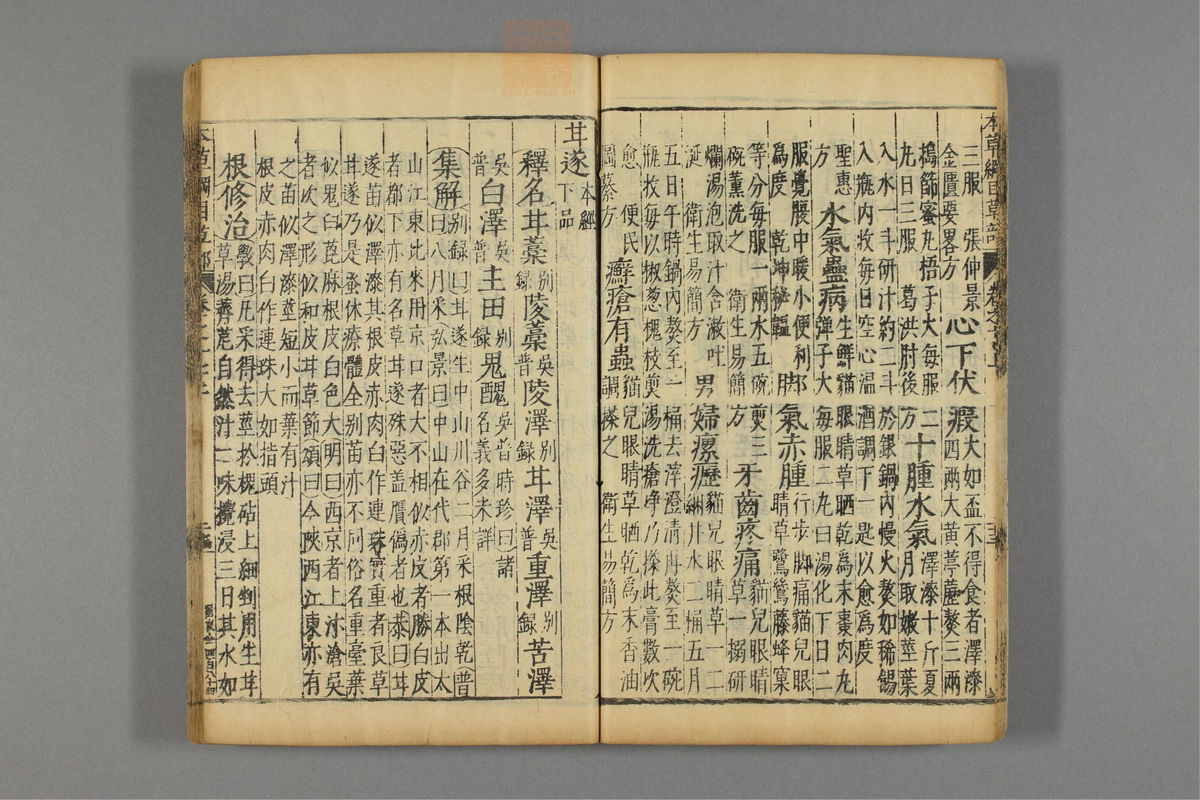 本草綱目草部
三服　張仲景心下伏瘕大如盃不得食者澤漆
金匱要畧方四兩大黃葶藶熬三兩
搗篩蜜丸梧子大每服二十腫水氣澤漆十斤夏
丸日三服　葛洪肘後方月取嫩莖葉
入水一斗研汁約二斗於銀鍋內慢火熬如稀餳
入瓶內收每日空心温酒調下一匙以愈爲度
聖惠方　水氣蠱病生鮮貓眼睛草晒乾爲末棗肉丸
彈子大每服二丸白湯化下日二
服覺腹中暖小便利爲度　乾坤秘韞　脚氣赤腫行步脚痛貓兒眼睛草鷺鷥藤蜂窠
等分每服一兩水五碗煎三
碗薰洗之　衛生易簡方　牙齒疼痛貓兒眼睛草一搦研
爛湯泡取汁含漱吐涎　衛生易簡方　男婦瘰癧貓兒眼睛草一二綑井水二桶五月
五日午時鍋內熬至一桶去滓澄清再熬至一碗
瓶收每以椒葱槐枝煎湯洗瘡净乃搽此膏數次
愈　便民圖纂方　癬瘡有蟲貓兒眼睛草晒乾爲末香油
調搽之　衛生易簡方
甘遂本經下品
釋名甘藁别録陵藁吳普陵澤别録甘澤吳普重澤别録苦澤
吳普白澤吳普主田别録鬼醜吳普時珍曰諸名義多未詳
集解别録曰甘遂生中山川谷二月采根陰乾普
曰八月采弘景曰中山在代郡第一本出太
山江東比來用京口者大不相似赤皮者勝白皮
者都下亦有名草甘遂殊惡盖贋僞者也恭曰甘
遂苗似澤漆其根皮赤肉白作連珠實重者良草
甘遂乃是蚤休療體全别苗亦不同俗名重臺葉
似鬼臼蓖麻根皮白色大明曰西京者上汴滄吳
者次之形似和皮甘草節頌曰今陝西江東亦有
之苗似澤漆莖短小而葉有汁
根皮赤肉白作連珠大如指頭
根修治斅曰凡采得去莖於槐砧上細剉用生甘
草湯薺苨自然汁二味攪浸三日其水如
本草綱目草部